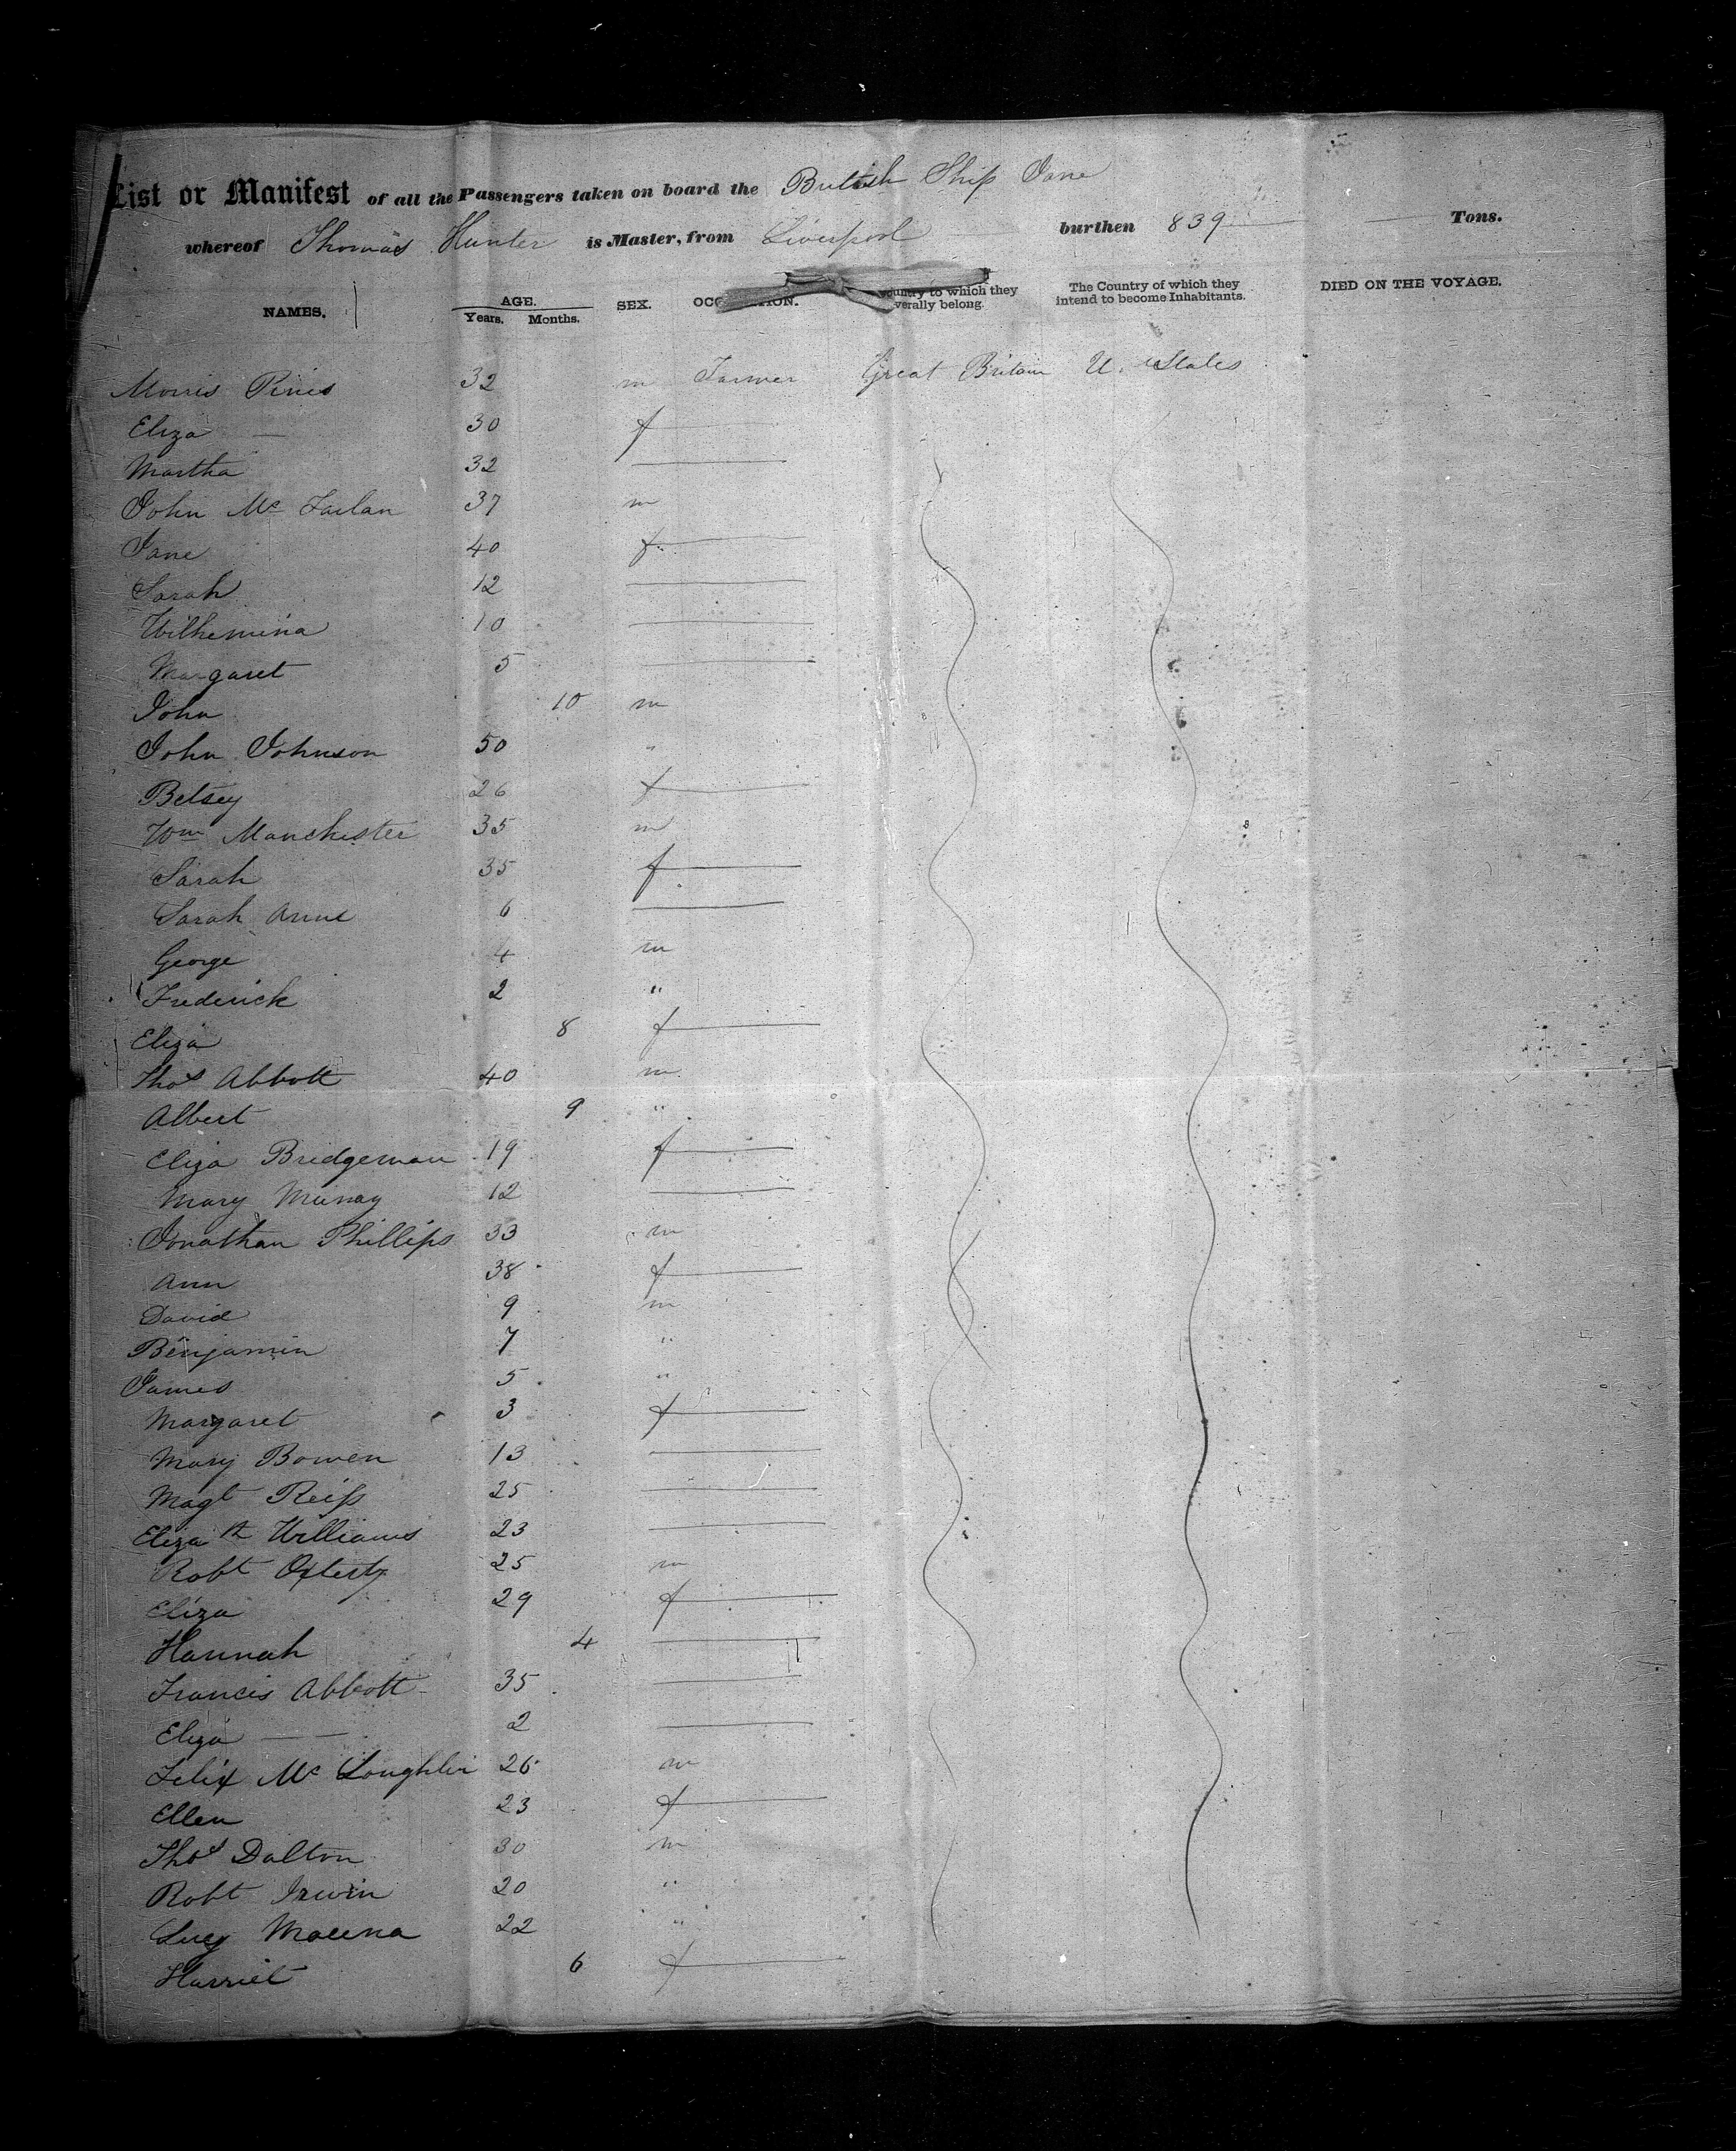 List or Manifest of all the Passengers taken on board the British Ship Jane
whereof Thomas Hunter is Master, from Liverpool burthen 839 Tons.
NAMES. AGE. Years. Months. SEX. OCC ION. ountry to which they verally belong The Country of which they intend to become Inhabitants. DIED ON THE VOYAGE.
Morris 32 m Farmer Great Britain U. States
Eliza — 30 f
Martha 32
John Mc Farlan 37 m
Jane 40 f
Sarah 12
Wilhemina 10
Margaret 5
John 10 m
John Johnson 50 "
Betsey 26 f
Wm Manchester 35 m
Sarah 35 f
Sarah Anne 6
George 4 m
Frederick 2 "
Eliza 8 f
Thos Abbott 40 m
Albert 9 "
Eliza Bridgeman 19 f
Mary Murray 12
Jonathan Phillips 33 m
Ann 38 f
David 9 m
Benjamin 7 "
James 5 "
Margaret 3 f
Mary Bowen 13
Magt 25
Elizath Williams 23
Robt 25 m
Eliza 29 f
Hannah 4
Francis Abbott 35
Eliza — 2
Felix Mc Loughlin 26 m
Ellen 23 f
Thos Dalton 30 m
Robt Irwin 20 "
Lucy 22 "
Harriet 6 f